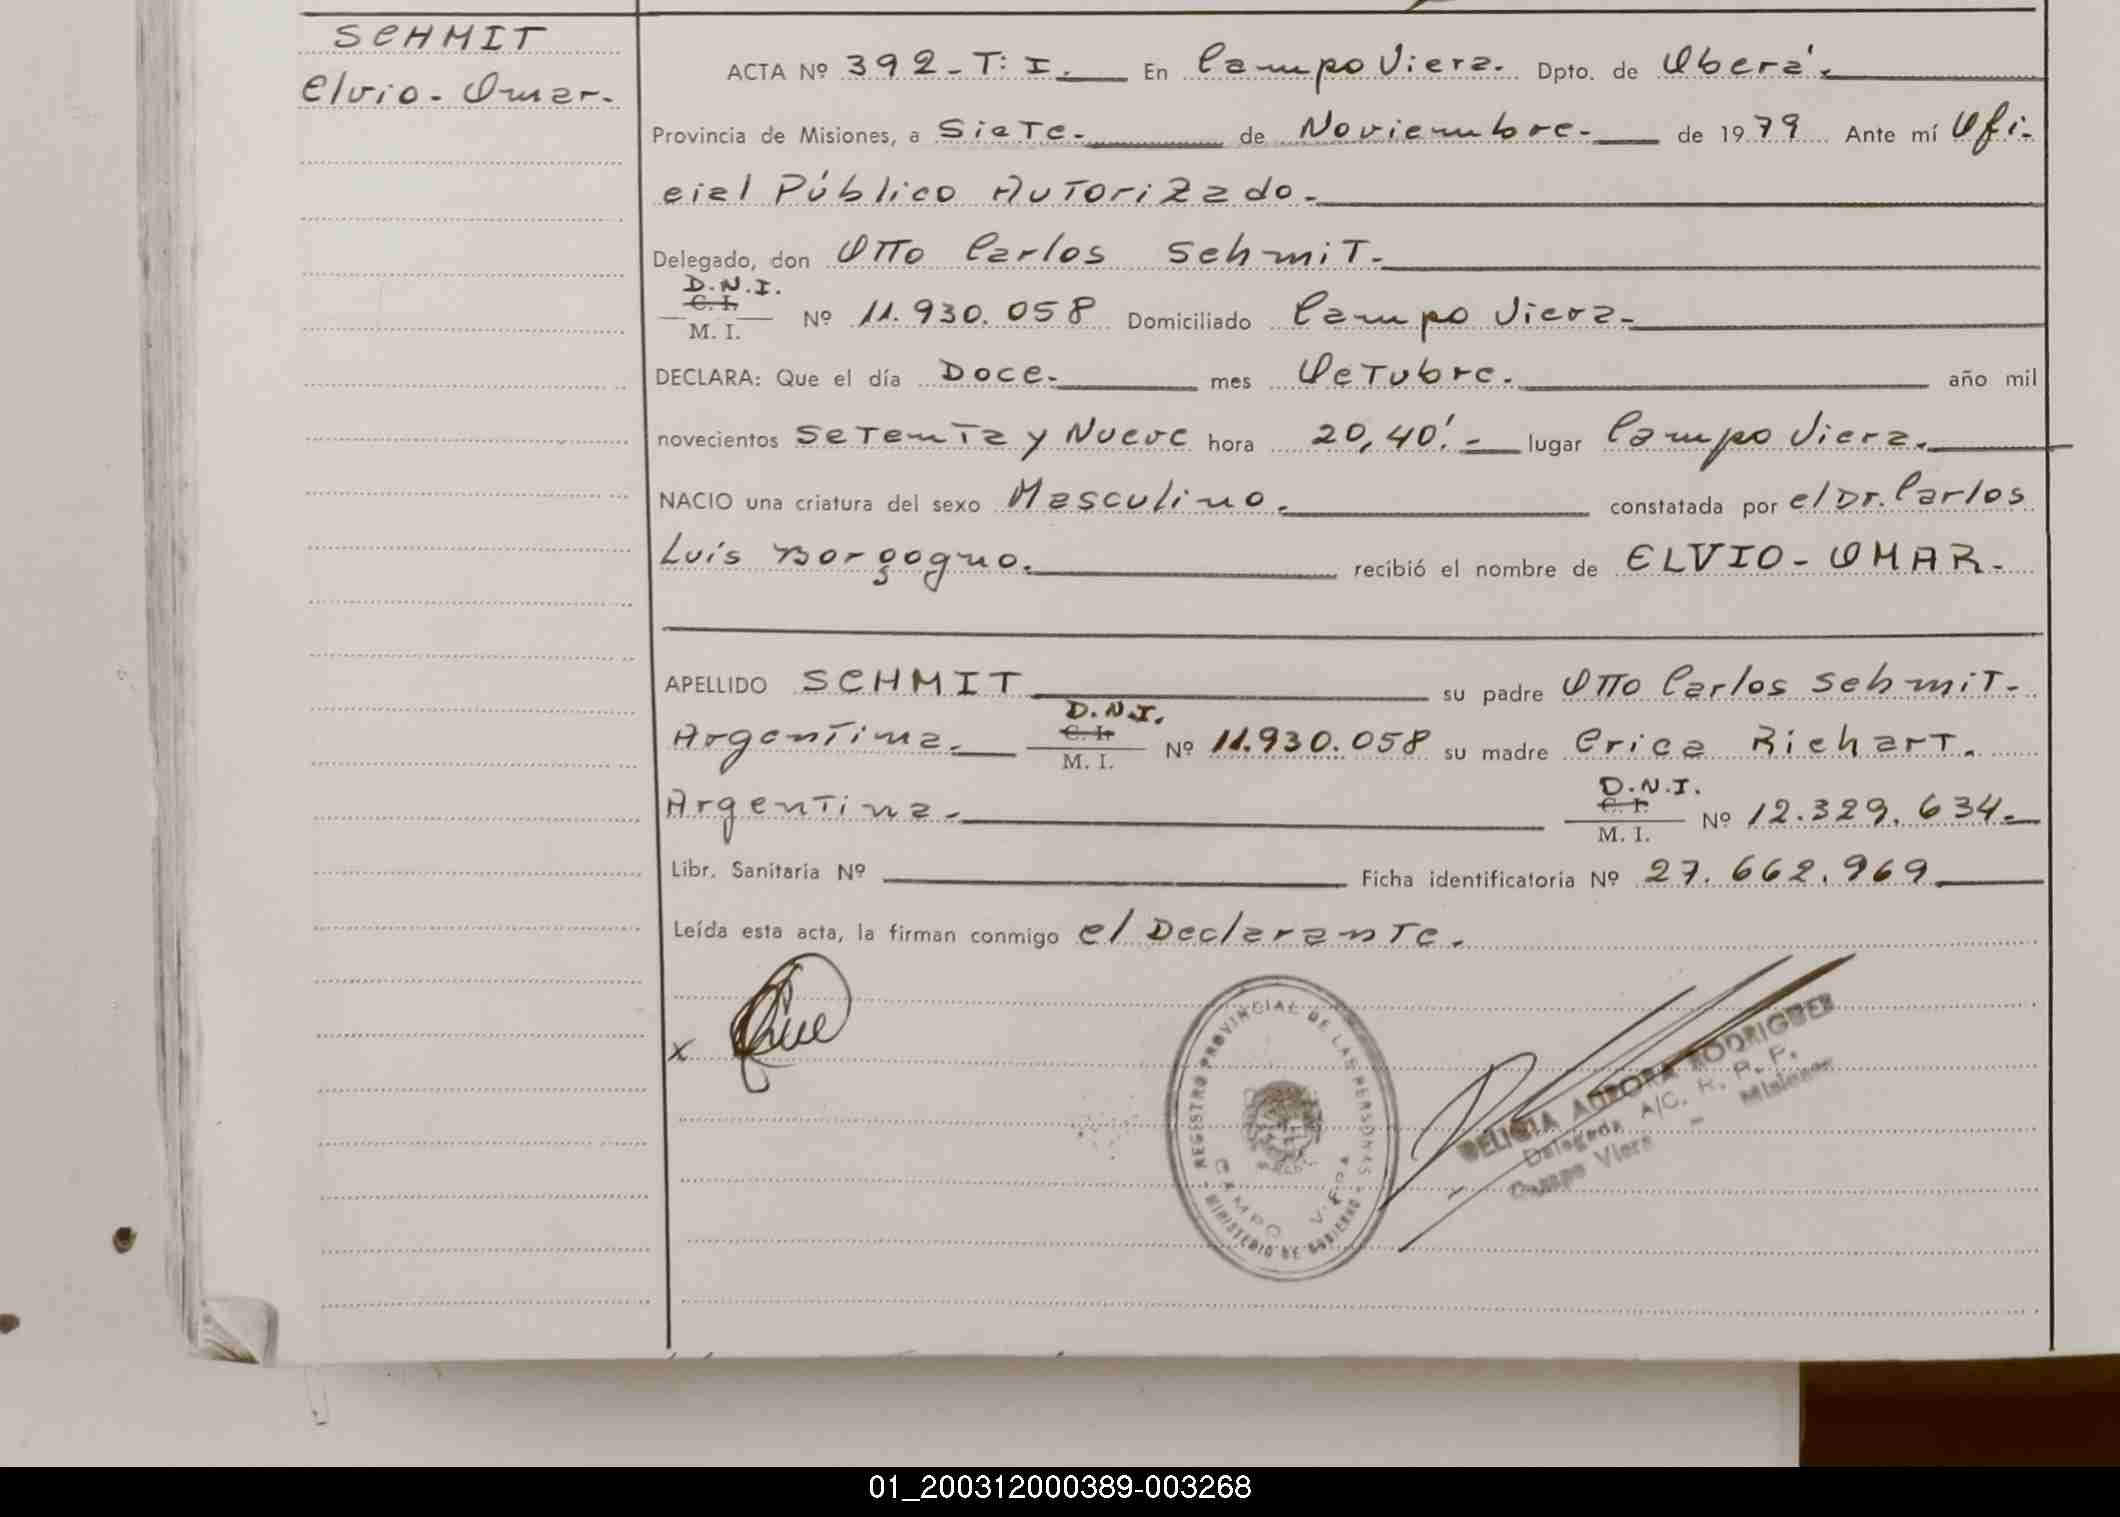 SCHMIT
Elvio-Omar.
ACTA Nº 392-T: I. En Campo Viera. Dpto. de Oberá.
Provincia de Misiones, a Siete. de Noviembre. de 1979 Ante mí Ofi-
cial Público Autorizado.
Delegado, don Otto Carlos Schmit.
D.N.I.
C. I.
M. I. Nº 11.930.058 Domiciliado Campo Viera.
DECLARA: Que el día Doce. mes Octubre. año mil
novecientos Setenta y Nueve hora 20,40'.- lugar Campo Viera.
NACIO una criatura del sexo Masculino. constatada por el Dr. Carlos
Luis Borgogno. recibió el nombre de ELVIO-OMAR.
APELLIDO SCHMIT su padre Otto Carlos Schmit.
D.N.I.
C. I.
Argentina. M. I. Nº 11.930.058 su madre Erica Richart.
D.N.I.
C. I.
Argentina. M. I. Nº 12.329.634.
Libr. Sanitaria Nº Ficha identificatoria Nº 27.662.969
Leída esta acta, la firman conmigo el Declarante.
x
REGISTRO PROVINCIAL DE LAS PERSONAS
CAMPO VIERA
MINISTERIO DE GOBIERNO
DELICIA AURORA RODRIGUEZ
Delegada A/C. R. P. P.
Campo Viera - Misiones
01_200312000389-003268